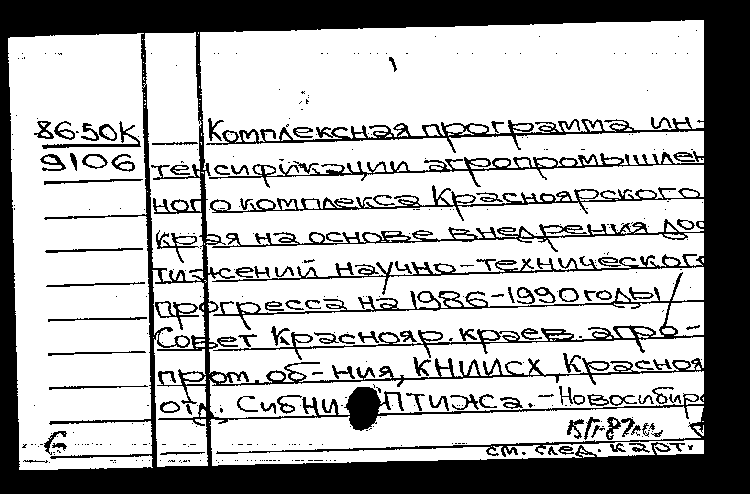 86-50К
9106
Комплексная программа ин-
тенсификации агропромышлен
ного комплекса Красноярского
края на основе внедрения дос
тижений научно-технического
прогресса на 1986-1990 годы /
Совет Краснояр. краев. агро-
пром. об-ния, КНИИСХ, Красноя
отд. СибНИ ПТИЖа. - Новосибирс
б
см. след. карт.